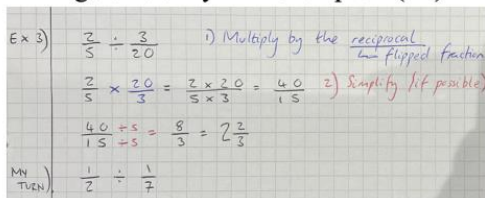 Ex 3) 2/5 ÷ 3/20 1) Multiply by the reciprocal
↳ flipped fraction
2/5 × 20/3 = 2 × 20 / 5 × 3 = 40/15 2) Simplify (if possible)
40/15 ÷5/÷5 = 8/3 = 2 2/3
MY TURN) 1/2 ÷ 1/7